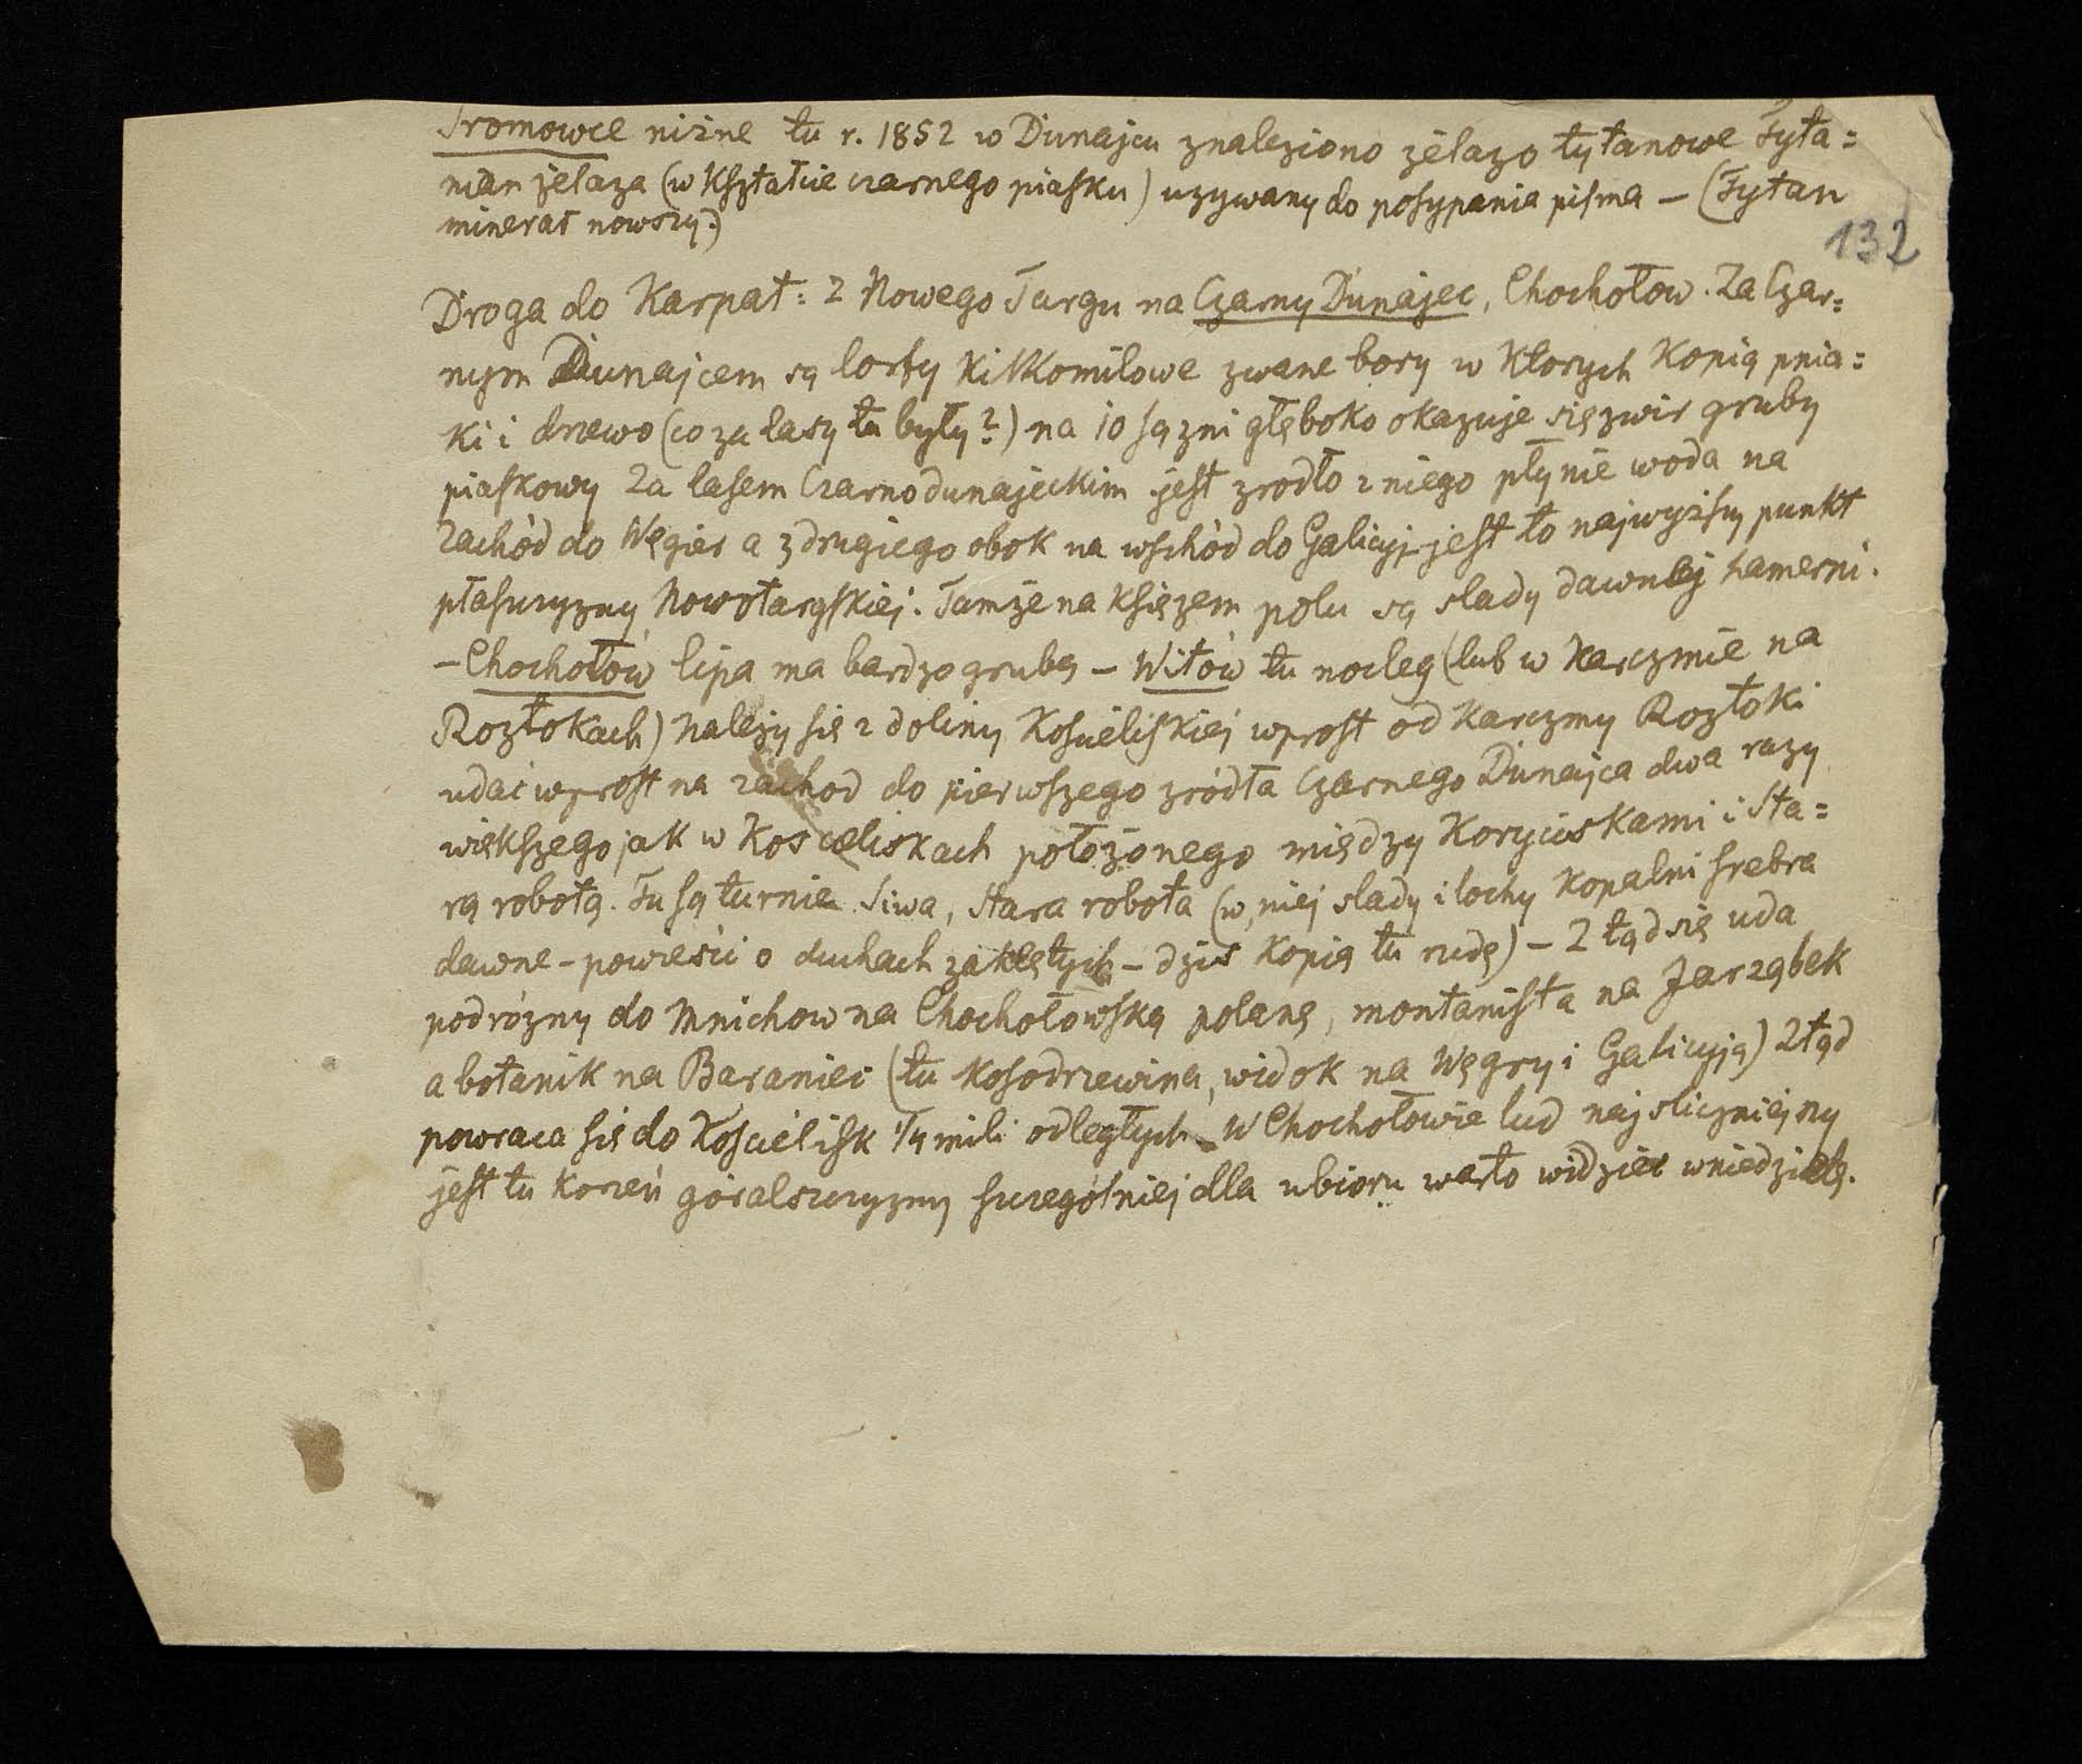 Sromowce niżne tu r. 1852 w Dunajcu znaleziono żelazo tytanowe Tyta=
nian żelaza (w kształcie czarnego piasku) uzywany do posypania pisma – (Tytan
minerał nowszy.)
132
Droga do Karpat: z Nowego Targu na Czarny Dunajec, Chochołow. Za Czar=
nym Dunajcem są torfy kilkomilowe zwane bory w których kopią pnia=
ki i drzewo (co za lasy tu były?) na 10 sązni głęboko okazuje się zwir gruby
piaskowy Za lasem Czarnodunajeckim jest zrodło z niego płynie woda na
zachód do Węgier a z drugiego obok na wschód do Galicyi jest to najwyższy punkt
płaszczyzny Nowotargskiej. Tamże na księzem polu są slady dawnej hamerni.
– Chochołów lipa ma bardzo grubą – Witów tu nocleg (lub w karczmie na
Roztokach) należy się z doliny Koscieliskiej wprost od karczmy Roztoki
udać wprost na zachod do pierwszego zródła Czarnego Dunajca dwa razy
większego jak w Koscieliskach położonego między Koryciskami i Sta=
rą robotą. Tu są turnie Siwa, Stara robota (w niej slady i lochy kopalni srebra
dawne – powieści o duchach zaklętych – dziś kopią tu rudę) – Z tąd się uda
podrózny do Mnichow na Chochołowską polanę, montanista na Jarząbek
a botanik na Baraniec (tu kosodrzewina, widok na Węgry i Galicyją) Ztąd
powraca się do Koscielisk 1/4 mili odległych – W Chochołowie lud najsliczniejszy
jest tu korzeń góralszczyzny szczegółniej dla ubioru warto widzieć w niedzielę.